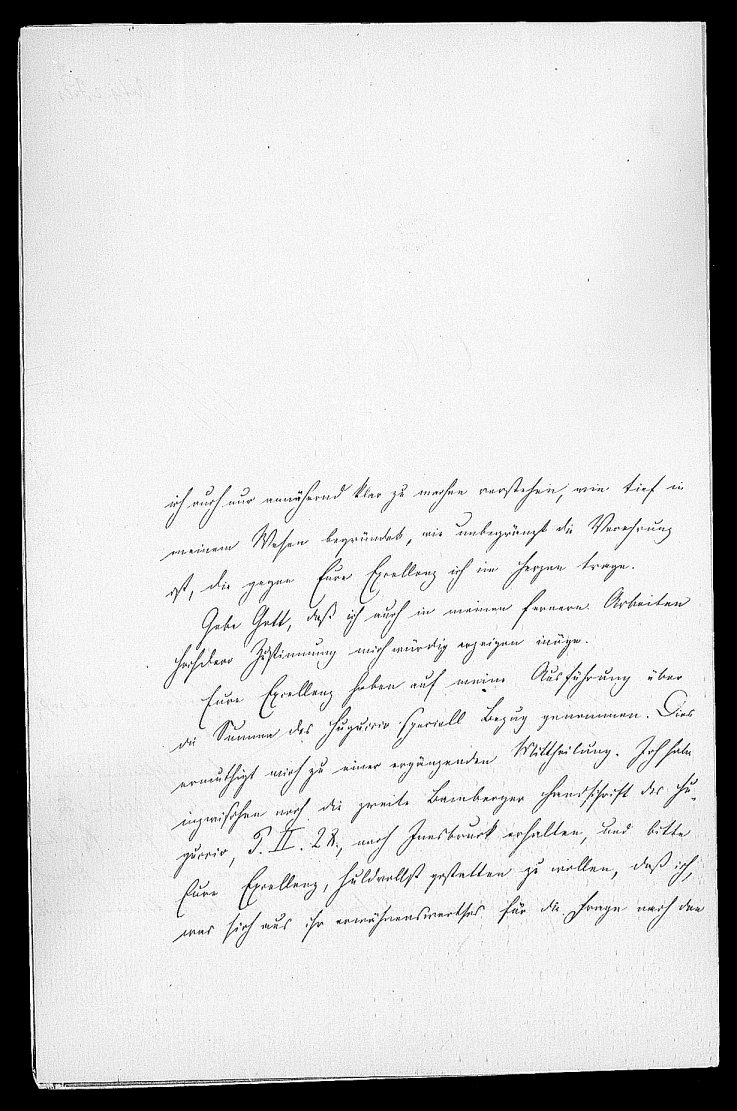 ich auch nur annähernd klar zu machen verstehen, wie tief in
meinem Wesen begründet, wie unbegränzt die Verehrung
ist, die gegen Eure Excellenz ich im Herzen trage.
Gebe Gott, daß ich auch in meinen fernern Arbeiten
Hochdero Zustimmung mich würdig erzeigen möge.
Eure Excellenz haben auf meine Ausführung über
die Summa des Huguccio speciell Bezug genommen. Dies
ermuthigt mich zu einer ergänzenden Mittheilung. Ich habe
inzwischen noch die zweite Bamberger Handschrift des Hu-
guccio, P. II. 28., nach Innsbruck erhalten, und bitte
Eure Excellenz, huldvollst gestatten zu wollen, daß ich,
was sich aus ihr erwähnenswerthes für die Frage nach den